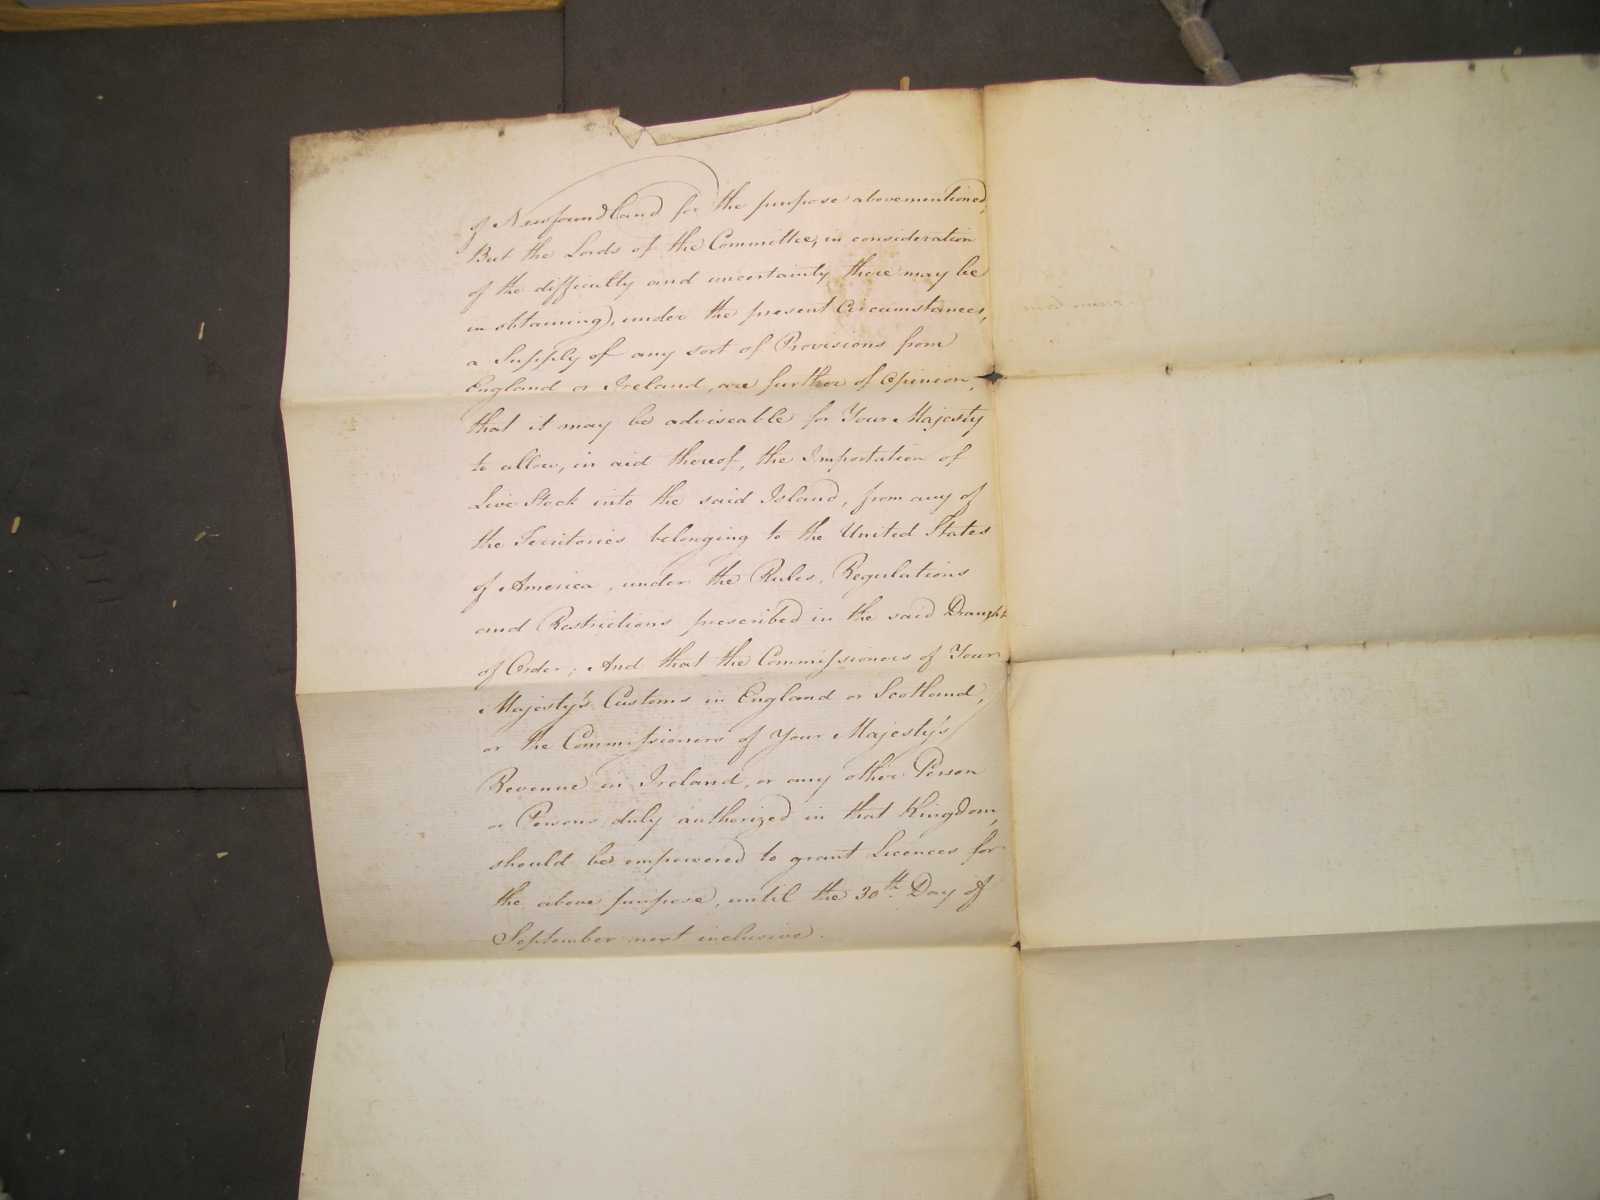 of Newfoundland for the purpose abovementioned,
But the Lords of the Committee, in consideration
of the difficulty and uncertainty there may be
in obtaining, under the present Circumstances,
a Supply of any sort of Provisions from
England or Ireland, are further of Opinion,
that it may be adviseable for Your Majesty
to allow, in aid thereof, the Importation of
Live Stock into the said Island, from any of
the Territories belonging to the United States
of America, under the Rules, Regulations
and Restrictions prescribed in the said Draught
of Order; And that the Commissioners of Your
Majesty's Customs in England or Scotland,
or the Commissioners of Your Majesty's
Revenue in Ireland, or any other Person
or Persons duly authorized in that Kingdom,
should be empowered to grant Licences for
the above purpose, until the 30th. Day of
September next inclusive.